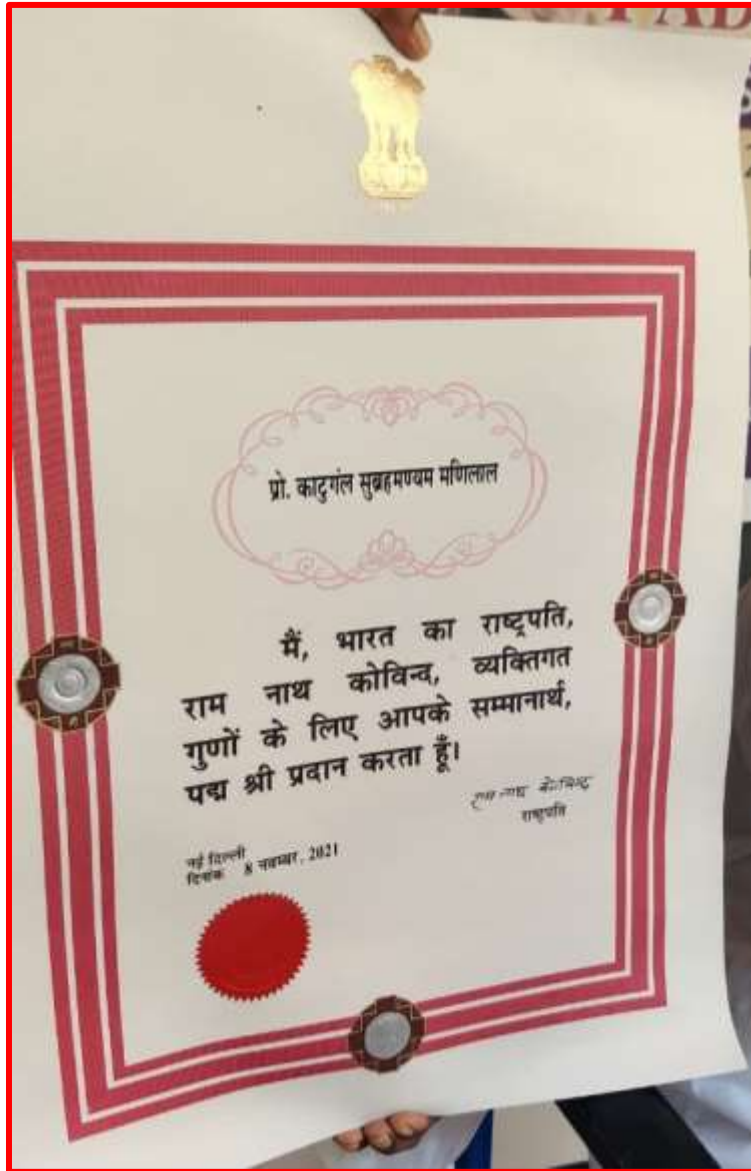 प्रो. काटुगंल सुब्रहमण्यम मणिलाल
मैं, भारत का राष्ट्रपति,
राम नाथ कोविन्द, व्यक्तिगत
गुणों के लिए आपके सम्मानार्थ,
पद्म श्री प्रदान करता हूँ।
राम नाथ कोविन्द
राष्ट्रपति
नई दिल्ली
दिनांक 8 नवम्बर, 2021